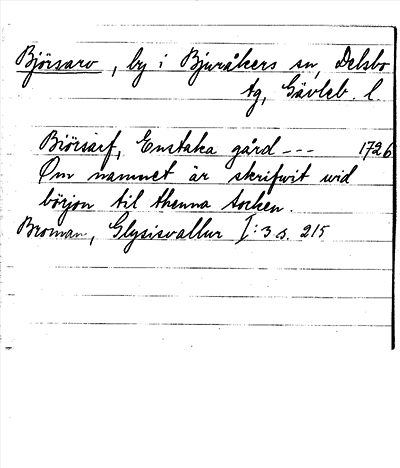 Björsarv, by i Bjuråkers sn, Delsbo
tg, Gävleb. l.
Biörsarf, Enstaka gård --- 1726
Om namnet är skrifwit wid
börjon til thenna sochen.
Broman, Glysisvallur I:3 s. 215